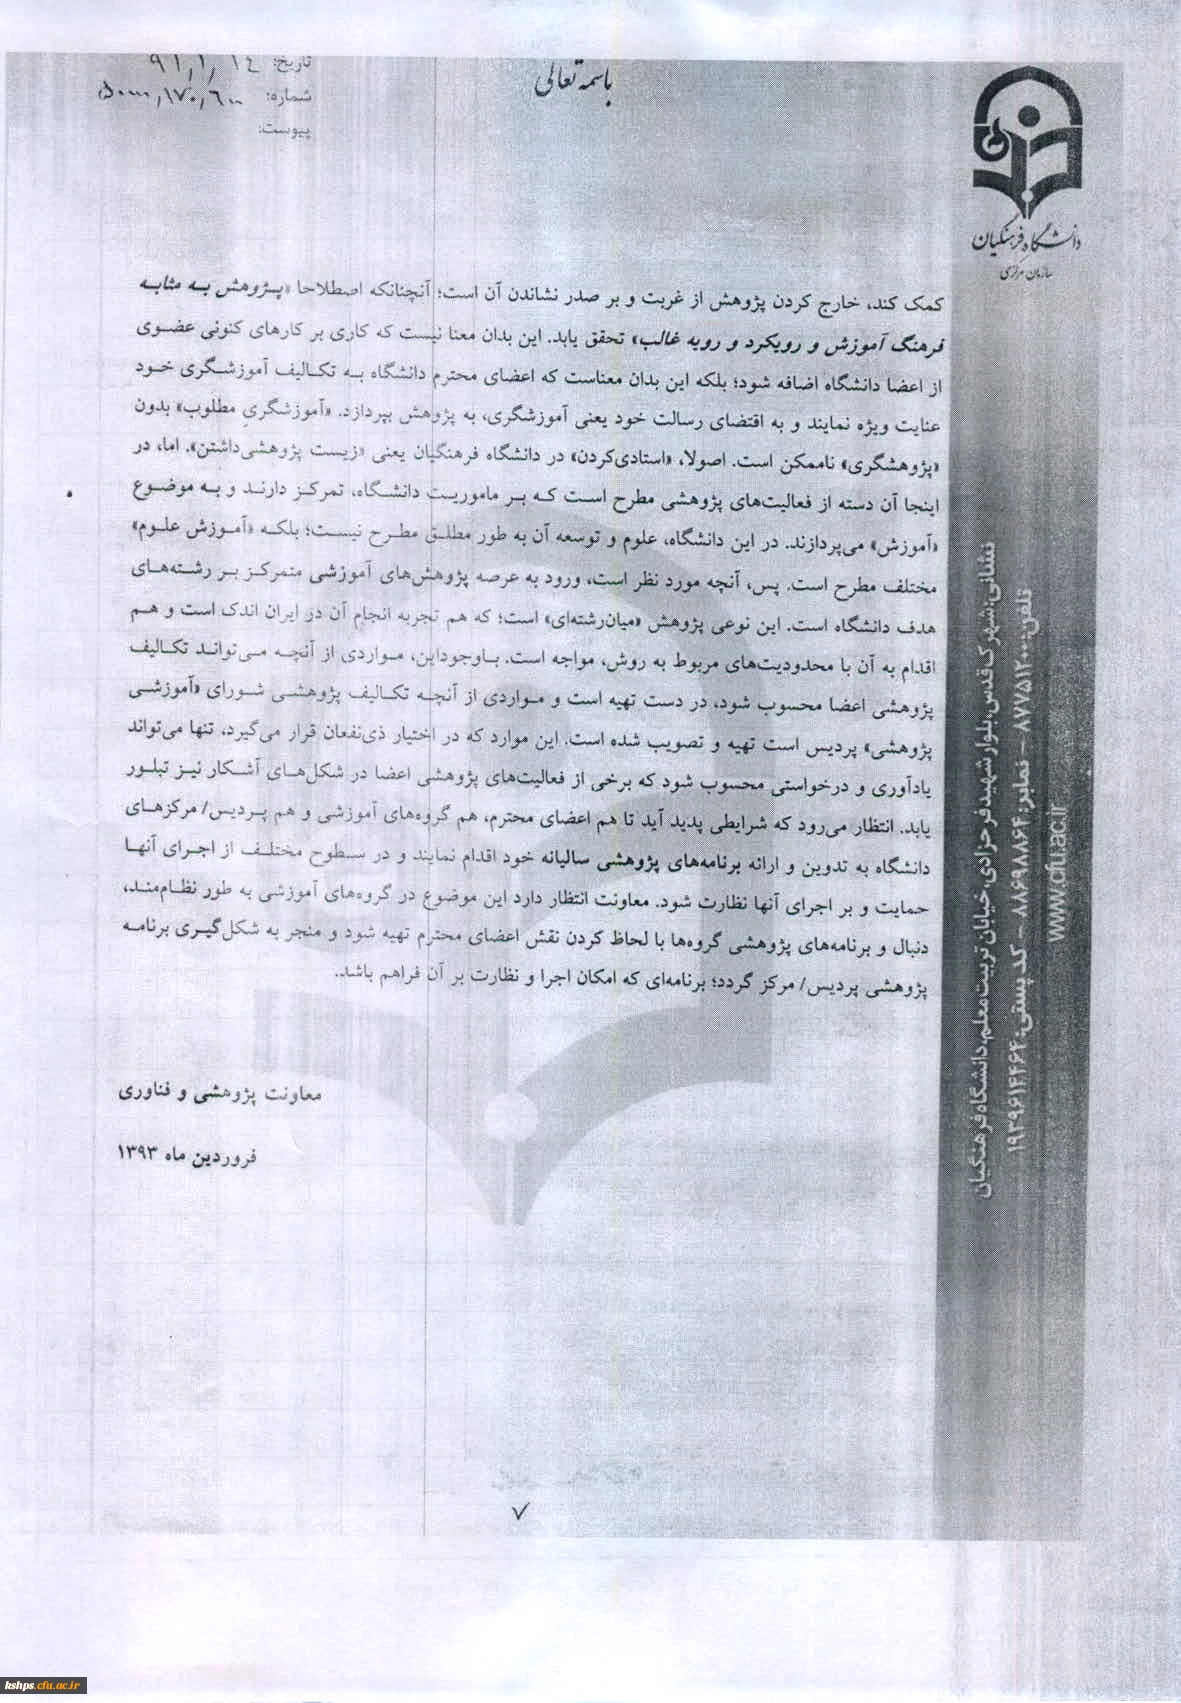 باسمه تعالی
تاریخ:
شماره:
پیوست:
دانشگاه فرهنگیان
سازمان مرکزی
کمک کند، خارج کردن پژوهش از غربت و بر صدر نشاندن آن است؛ آنچنانکه اصطلاحا «پژوهش به مثابه
فرهنگ آموزش و رویکرد و رویه غالب» تحقق یابد. این بدان معنا نیست که کاری بر کارهای کنونی عضوی
از اعضا دانشگاه اضافه شود؛ بلکه این بدان معناست که اعضای محترم دانشگاه به تکالیف آموزشگری خود
عنایت ویژه نمایند و به اقتضای رسالت خود یعنی آموزشگری، به پژوهش بپردازد. «آموزشگریِ مطلوب» بدون
«پژوهشگری» ناممکن است. اصولا، «استادی‌کردن» در دانشگاه فرهنگیان یعنی «زیست پژوهشی‌داشتن». اما، در
اینجا آن دسته از فعالیت‌های پژوهشی مطرح است که بر ماموریت دانشگاه، تمرکز دارند و به موضوع
«آموزش» می‌پردازند. در این دانشگاه، علوم و توسعه آن به طور مطلق مطرح نیست؛ بلکه «آموزش علوم»
مختلف مطرح است. پس، آنچه مورد نظر است، ورود به عرصه پژوهش‌های آموزشی متمرکز بر رشته‌های
هدف دانشگاه است. این نوعی پژوهش «میان‌رشته‌ای» است؛ که هم تجربه انجام آن در ایران اندک است و هم
اقدام به آن با محدودیت‌های مربوط به روش، مواجه است. باوجوداین، مواردی از آنچه می‌تواند تکالیف
پژوهشی اعضا محسوب شود، در دست تهیه است و مواردی از آنچه تکالیف پژوهشی شورای «آموزشی
پژوهشی» پردیس است تهیه و تصویب شده است. این موارد که در اختیار ذی‌نفعان قرار می‌گیرد، تنها می‌تواند
یادآوری و درخواستی محسوب شود که برخی از فعالیت‌های پژوهشی اعضا در شکل‌های آشکار نیز تبلور
یابد. انتظار می‌رود که شرایطی پدید آید تا هم اعضای محترم، هم گروه‌های آموزشی و هم پردیس/ مرکزهای
دانشگاه به تدوین و ارائه برنامه‌های پژوهشی سالیانه خود اقدام نمایند و در سطوح مختلف از اجرای آنها
حمایت و بر اجرای آنها نظارت شود. معاونت انتظار دارد این موضوع در گروه‌های آموزشی به طور نظام‌مند،
دنبال و برنامه‌های پژوهشی گروه‌ها با لحاظ کردن نقش اعضای محترم تهیه شود و منجر به شکل‌گیری برنامه
پژوهشی پردیس/ مرکز گردد؛ برنامه‌ای که امکان اجرا و نظارت بر آن فراهم باشد.
معاونت پژوهشی و فناوری
فروردین ماه ۱۳۹۳
نشانی: شهرک قدس، بلوار شهید فرحزادی، خیابان تربیت معلم، دانشگاه فرهنگیان
تلفن: ۸۷۷۵۱۲۰۰ – نمابر: ۸۸۶۹۸۸۶۴ – کد پستی: ۱۹۳۹۶۱۴۴۶۴
www.cfu.ac.ir
۷
kshps.cfu.ac.ir